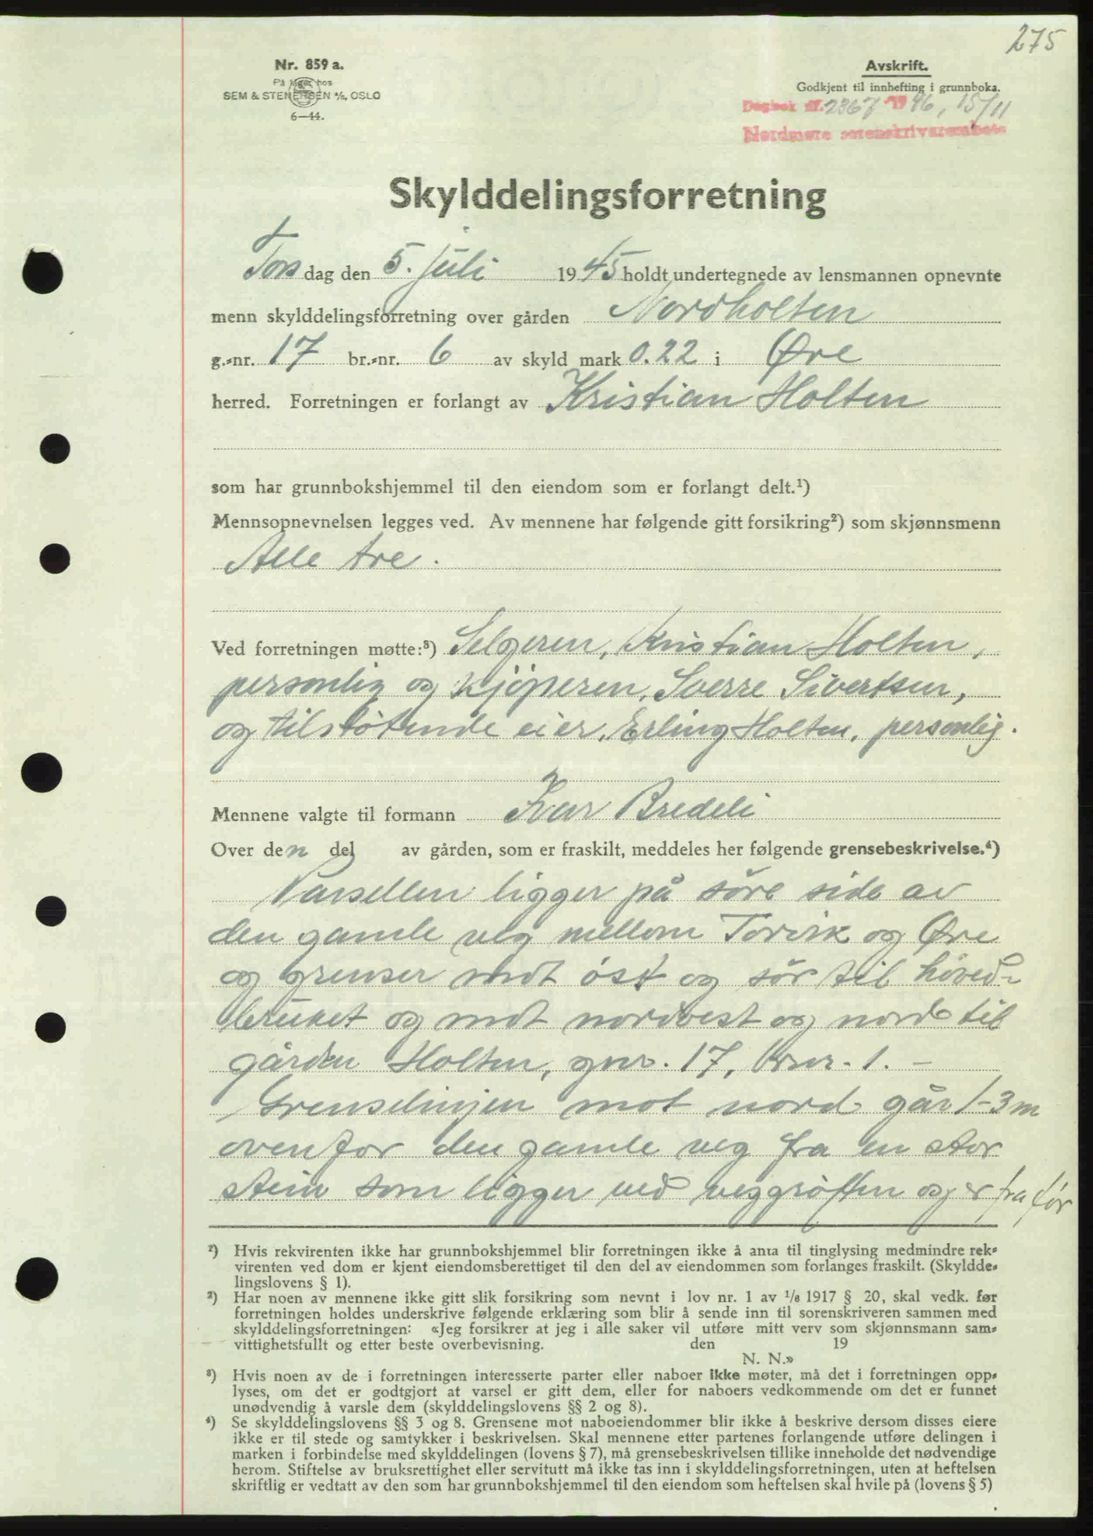 275
Nr. 859 a.
På lager hos
SEM & STENERSEN A/S, OSLO
6—44.
Avskrift.
Godkjent til innhefting i grunnboka.
Dagbok nr. 2367 1946, 15/11
Nordmøre sorenskriverembete
Skylddelingsforretning
Torsdag den 5. juli 1945 holdt undertegnede av lensmannen opnevnte
menn skylddelingsforretning over gården Nordholten
g.-nr. 17 br.-nr. 6 av skyld mark 0.22 i Øre
herred. Forretningen er forlangt av Kristian Holten
som har grunnbokshjemmel til den eiendom som er forlangt delt.¹)
Mennsopnevnelsen legges ved. Av mennene har følgende gitt forsikring²) som skjønnsmenn
Alle tre.
Ved forretningen møtte:³) Selgeren, Kristian Holten,
personlig og kjøperen, Sverre Sivertsen,
og tilstøtende eier, Erling Holten, personlig.
Mennene valgte til formann Ivar Bredeli
Over den del av gården, som er fraskilt, meddeles her følgende grensebeskrivelse.⁴)
Parsellen ligger på søre side av
den gamle veg mellom Torvik og Øre
og grenser mot øst og sør til hoved-
bruket og mot nordvest og nord til
gården Holten, gnr. 17, brnr. 1. –
Grenselinjen mot nord går 1-3 m
ovenfor den gamle veg fra en stor
stein som ligger ved veggrøften og er fra før
¹) Hvis rekvirenten ikke har grunnbokshjemmel blir forretningen ikke å anta til tinglysing medmindre rek-
virenten ved dom er kjent eiendomsberettiget til den del av eiendommen som forlanges fraskilt. (Skyldde-
lingslovens § 1).
²) Har noen av mennene ikke gitt slik forsikring som nevnt i lov nr. 1 av 1/6 1917 § 20, skal vedk. før
forretningen holdes underskrive følgende erklæring som blir å sende inn til sorenskriveren sammen med
skylddelingsforretningen: «Jeg forsikrer at jeg i alle saker vil utføre mitt verv som skjønnsmann sam-
vittighetsfullt og etter beste overbevisning. den 19
N. N.»
³) Hvis noen av de i forretningen interesserte parter eller naboer ikke møter, må det i forretningen opp-
lyses, om det er godtgjort at varsel er gitt dem, eller for naboers vedkommende om det er funnet
unødvendig å varsle dem (skylddelingslovens §§ 2 og 8).
⁴) Se skylddelingslovens §§ 3 og 8. Grensene mot naboeiendommer blir ikke å beskrive dersom disses eiere
ikke er til stede og samtykker i beskrivelsen. Skal mennene etter partenes forlangende utføre delingen i
marken i forbindelse med skylddelingen (lovens § 7), må grensebeskrivelsen tillike inneholde det nødvendige
herom. Stiftelse av bruksrettighet eller servitutt må ikke tas inn i skylddelingsforretningen, uten at heftelsen
skriftlig er vedtatt av den som har grunnbokshjemmel til den eiendom som heftelsen skal hvile på (lovens § 5)